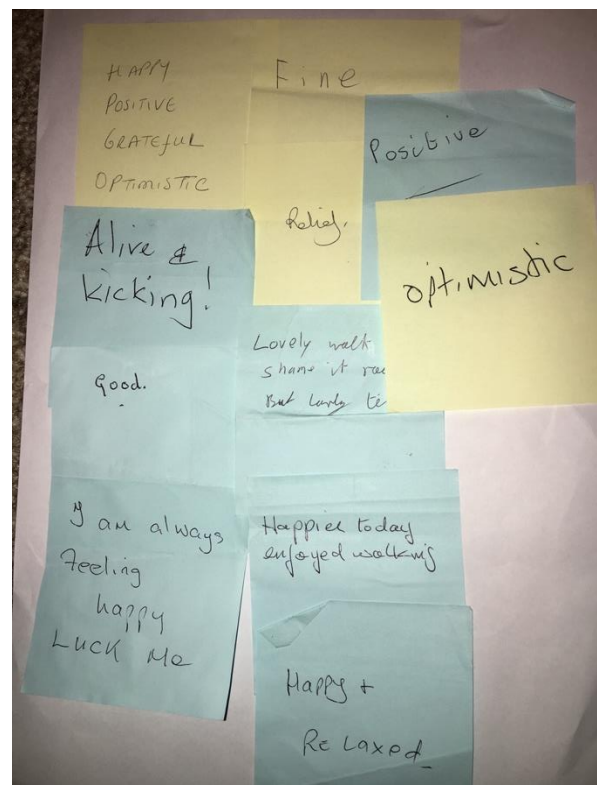 HAPPY
POSITIVE
GRATEFUL
OPTIMISTIC
Fine
Positive
Relief.
optimistic
Alive &
kicking!
Good.
Lovely walk
shame it
But lovely
I am always
Feeling
happy
LUCK Me
Happier today
enjoyed walking
Happy +
Relaxed